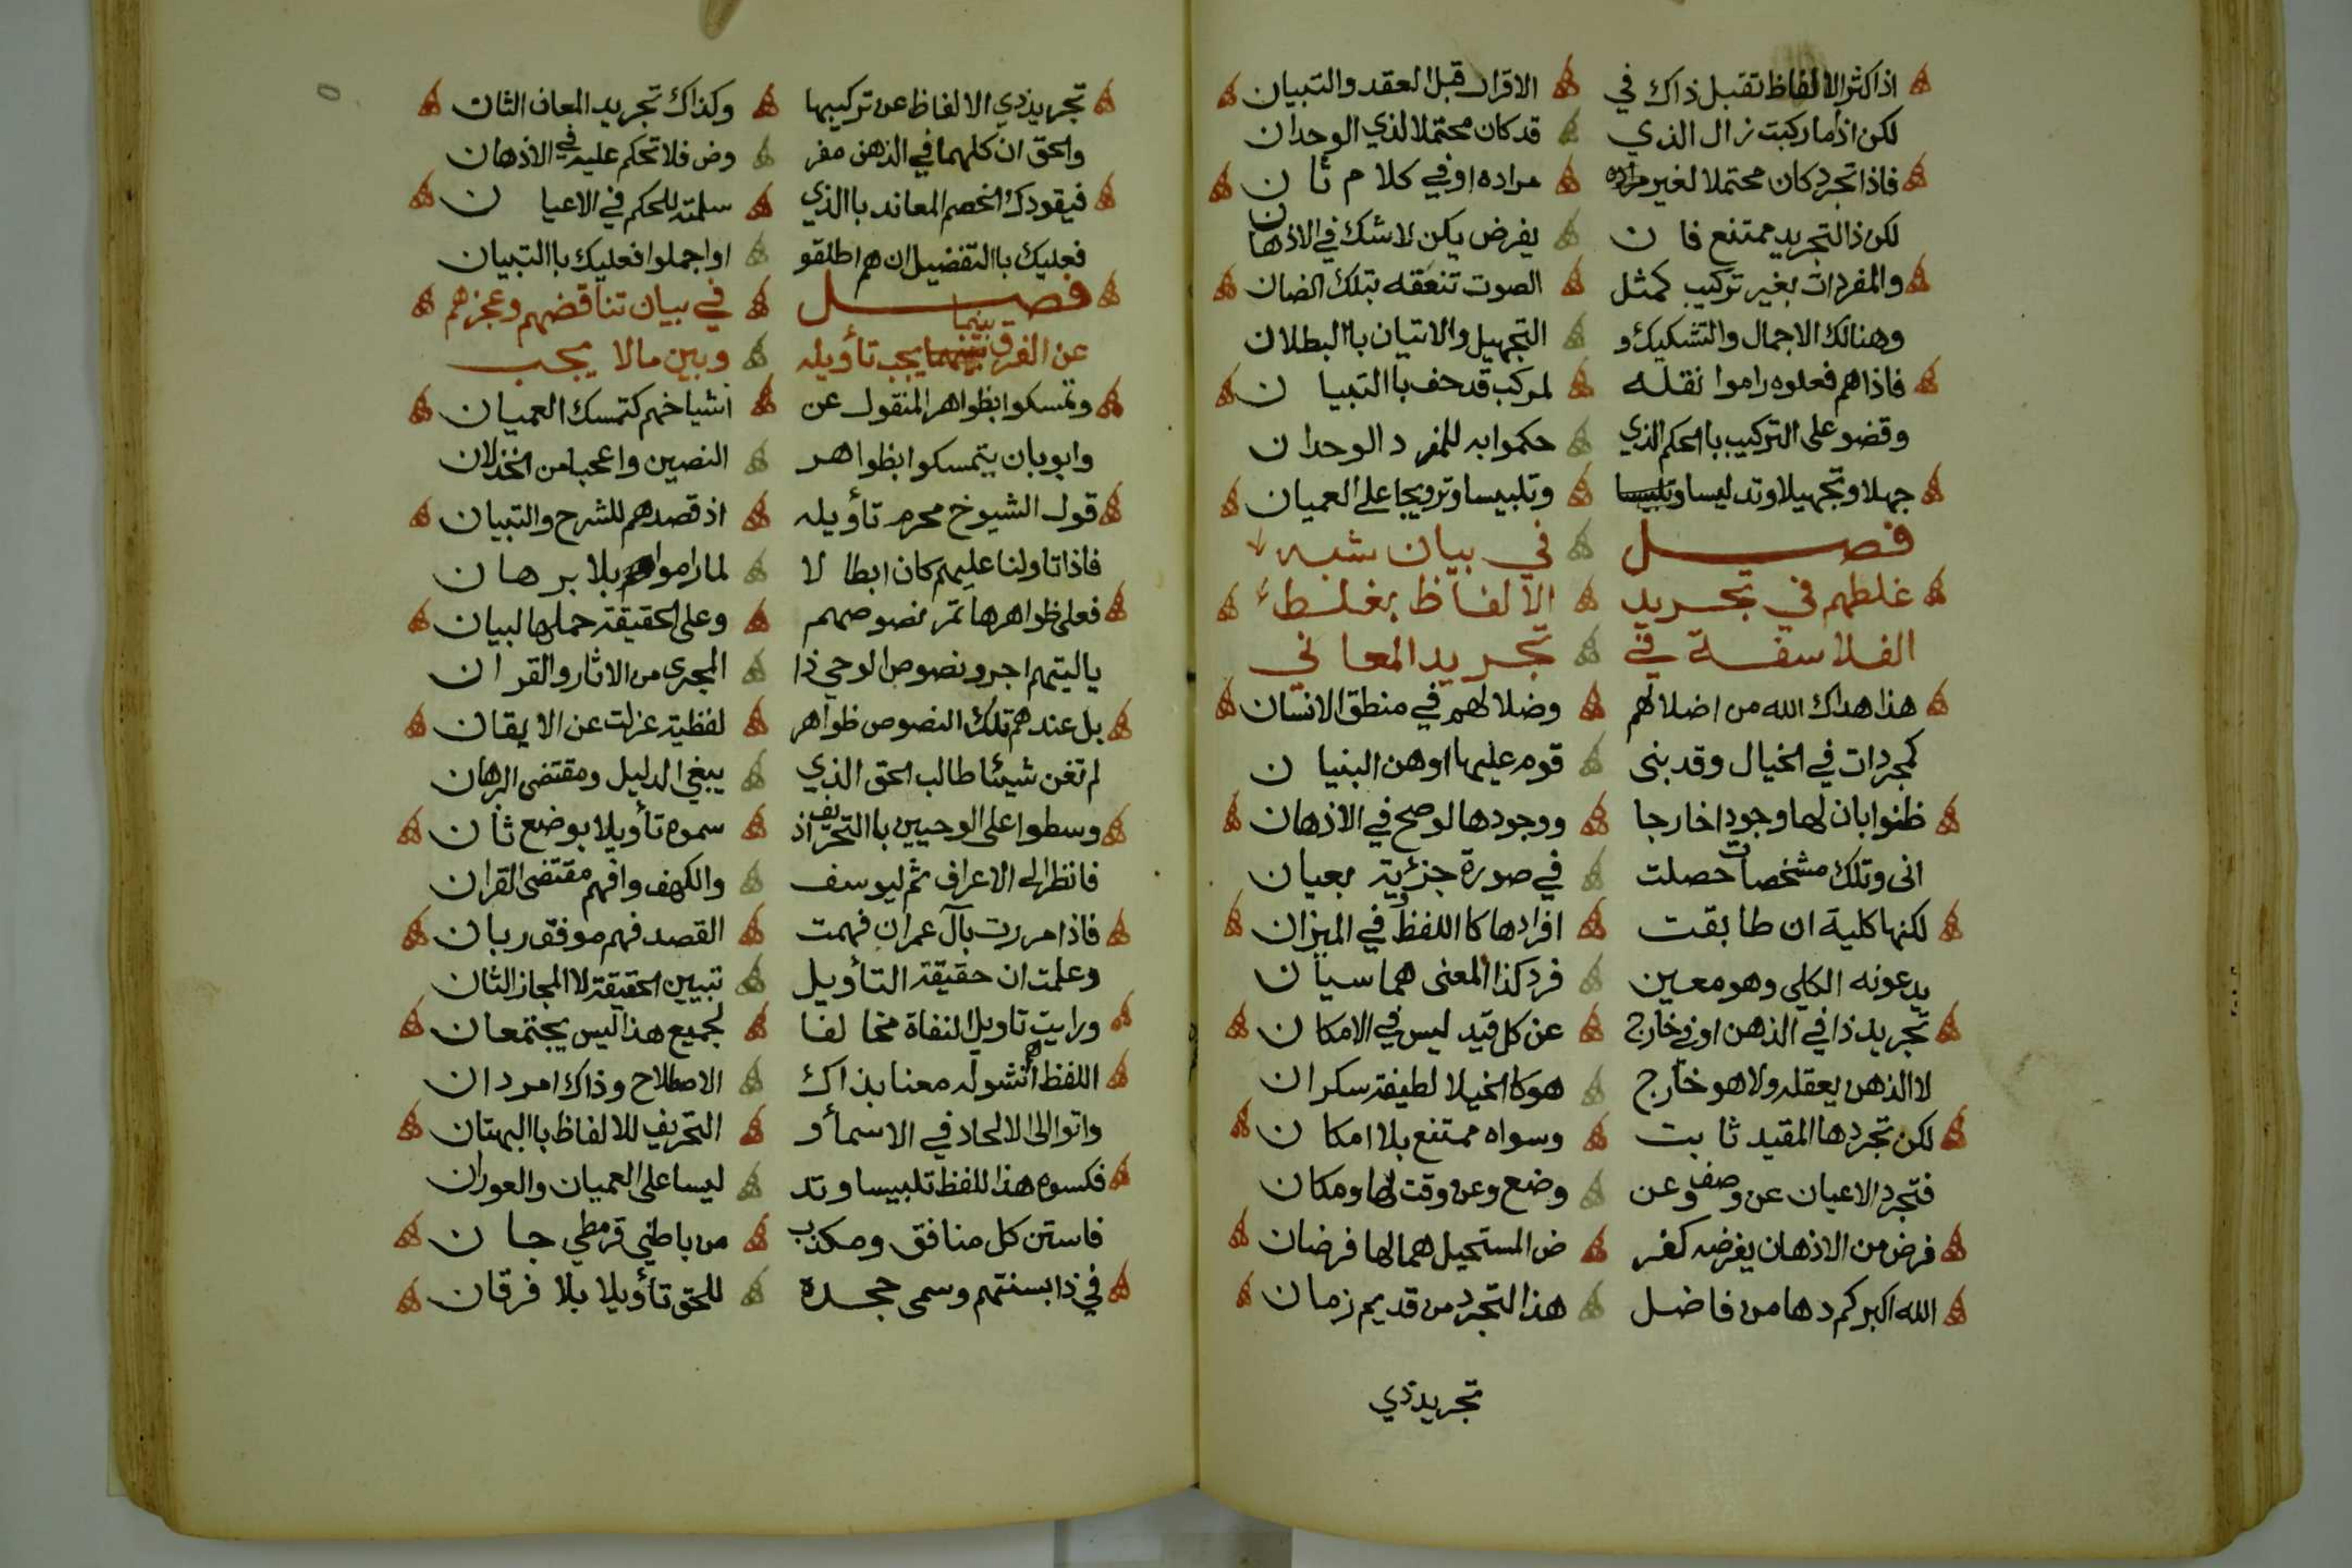 اذ اكثر الالفاظ تقبل ذاك في الافراد قبل العقد والتبيان
لكن اذا ما ركبت زال الذي قد كان محتملا لذي الوحدان
فاذا تجرد كان محتملا لغير مراده مراده او في كلام ثان
لكن ذا التجريد ممتنع فان يفرض يكن لا شك في الاذهان
والمفردات بغير تركيب كمثل الصوت تنعقه بتلك الضان
وهنالك الاجمال والتشكيك و التجهيل والاتيان باالبطلان
فاذا هم فعلوه راموا نقله لمركب قد حف باالتبيان
وقضو على التركيب باالحكم الذي حكموا به للمفرد الوحدان
جهلا وتجهيلا وتدليسا وتلبيسا وتلبيسا وترويجا على العميان
فصل في بيان شبه
غلطهم في تجريد الالفاظ بغلط
الفلاسفة في تجريد المعاني
هذا هداك الله من اضلالهم وضلالهم في منطق الانسان
كمجردات في الخيال وقد بنى قوم عليها اوهن البنيان
ظنوا بان لها وجودا خارجا ووجودها لو صح في الاذهان
انى وتلك مشخصات حصلت في صورة جزئية بعيان
لكنها كلية ان طابقت افرادها كااللفظ في الميزان
يدعونه الكلي وهو معين فرد كذا المعنى هما سيان
تجريد ذا في الذهن او في خارج عن كل قيد ليس في الامكان
لا الذهن يعقله ولا هو خارج هو كالخيال لطيفة سكران
لكن تجردها المقيد ثابت وسواه ممتنع بلا امكان
فتجرد الاعيان عن وصف وعن وضع وعن وقت لها ومكان
فرض من الاذهان يفرضه كفر ض المستحيل هما لها فرضان
الله اكبر كم دها من فاضل هذا التجرد من قديم زمان
تجريد ذي
تجريد ذي الالفاظ عن تركيبها وكذاك تجريد المعان الثان
والحق ان كلهما في الذهن مفر وض فلا تحكم عليه في الاذهان
فيقودك الخصم المعاند باالذي سلمته للحكم في الاعيان
فعليك باالتفضيل ان هم اطلقو او اجملوا فعليك باالتبيان
فصل في بيان تناقضهم وعجزهم
عن الفرق بينما يجب تأويله وبين مالا يجب
وتمسكوا بظواهر المنقول عن اشياخهم كتمسك العميان
وابو بان يتمسكوا بظواهر النصين واعجبا من الخذلان
قول الشيوخ محرم تأويله اذ قصدهم للشرح والتبيان
فاذا تاولنا عليهم كان ابطالا لما راموا بلا برهان
فعلى ظواهرها تمر نصوصهم وعلى الحقيقة حملها لبيان
يا ليتهم اجرو نصوص الوحي ذا المجرى من الاثار والقران
بل عندهم تلك النصوص ظواهر لفظية عزلت عن الايقان
لم تغن شيئا طالب الحق الذي يبغي الدليل ومقتضى البرهان
وسطوا على الوحيين باالتحريف اذ سموه تأويلا بوضع ثان
فانظر الى الاعراف ثم ليوسف والكهف وافهم مقتضى القران
فاذا مررت بآل عمران فهمت القصد فهم موفق ربان
وعلمت ان حقيقة التأويل تبيين الحقيقة لا المجاز الثان
ورايت تاويل النفاة مخالفا لجميع هذا ليس يجتمعان
اللفظ هم انشو له معنا بذاك الاصطلاح وذاك امر دان
واتوا الى الالحاد في الاسمأ و التحريف للالفاظ باالبهتان
فكسوه هذا للفظ تلبيسا وتد ليسا على العميان والعوران
فاستن كل منافق ومكذب من باطني قرمطي جان
في ذا بسنتهم وسمى جحده للحق تأويلا بلا فرقان